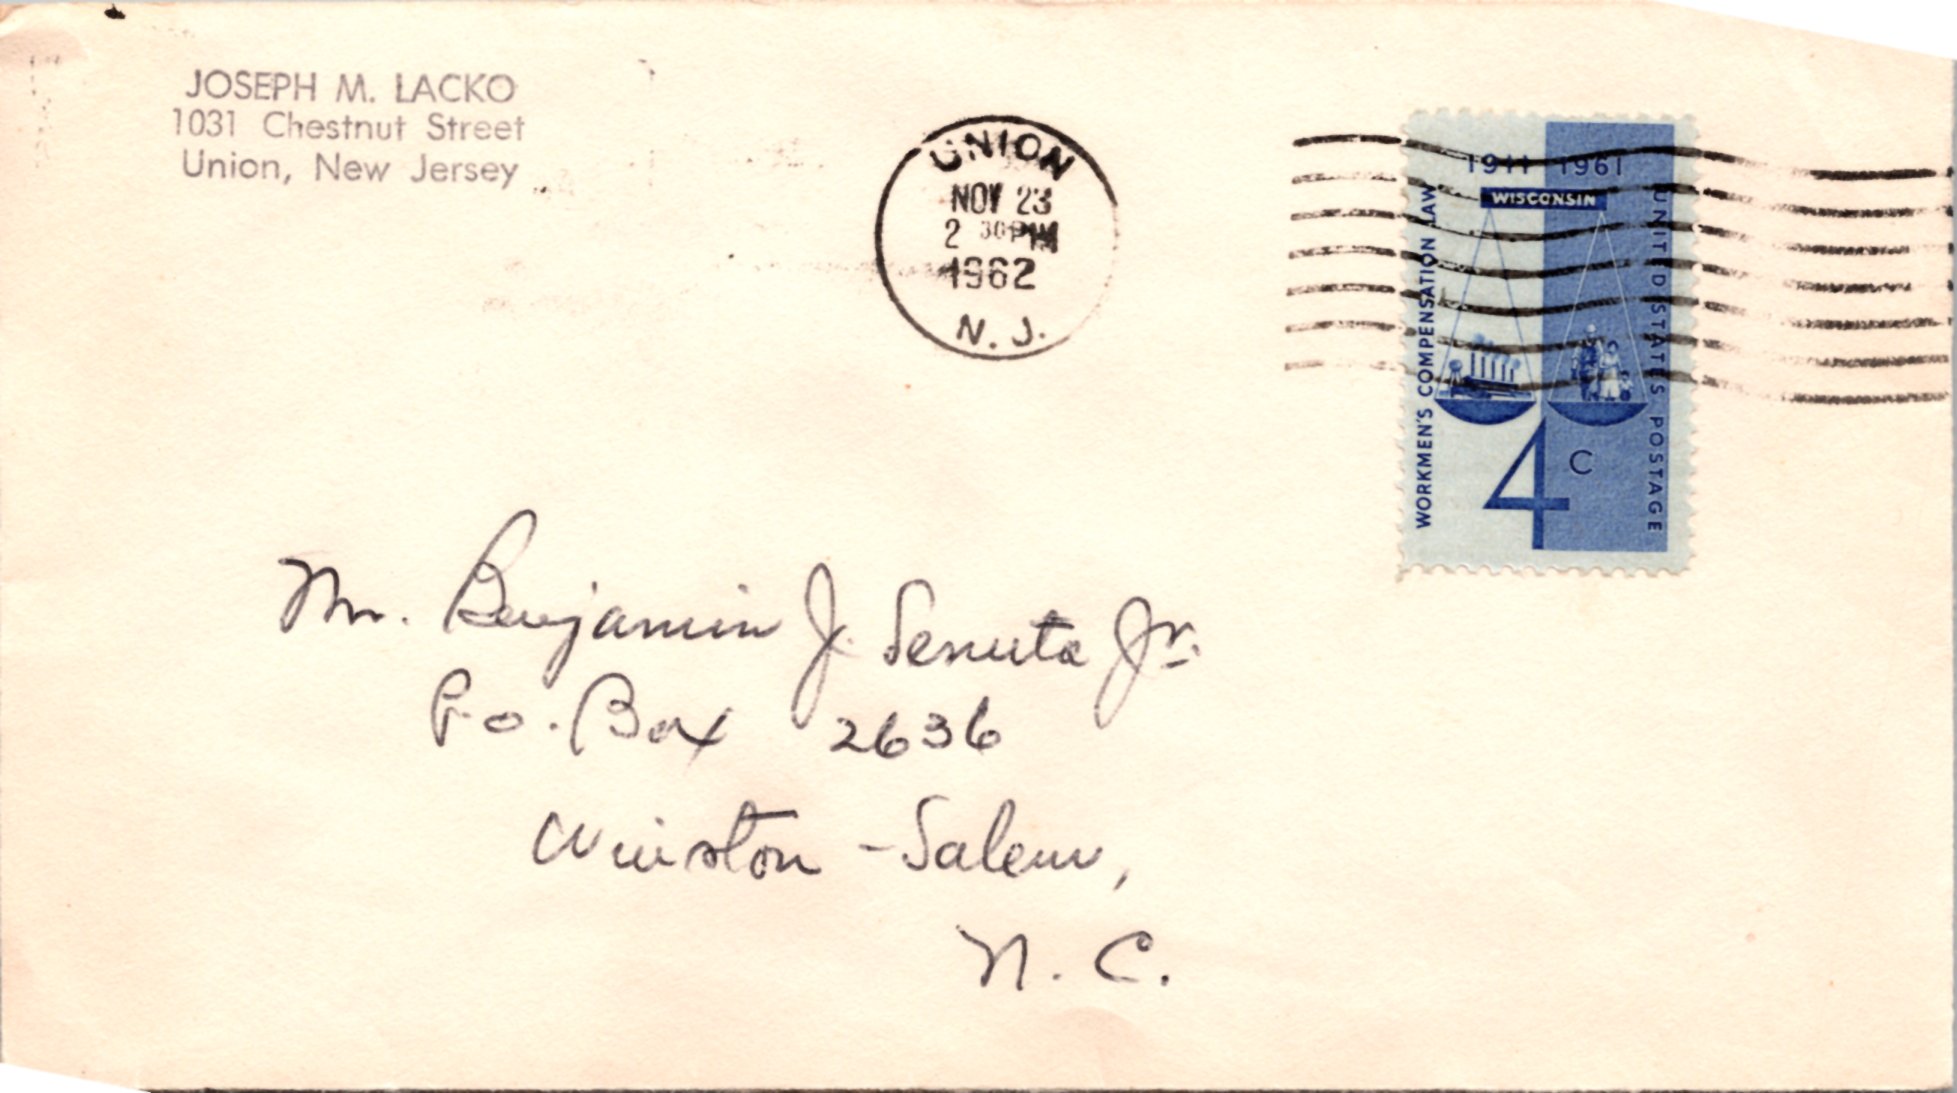 JOSEPH M. LACKO
1031 Chestnut Street
Union, New Jersey
UNION
NOV 23
2 30 PM
1962
N. J.
1911 1961
WISCONSIN
WORKMEN'S COMPENSATION LAW
UNITED STATES POSTAGE
4 C
Mr. Benjamin J. Senuta Jr.
P.O. Box 2636
Winston-Salem,
N. C.